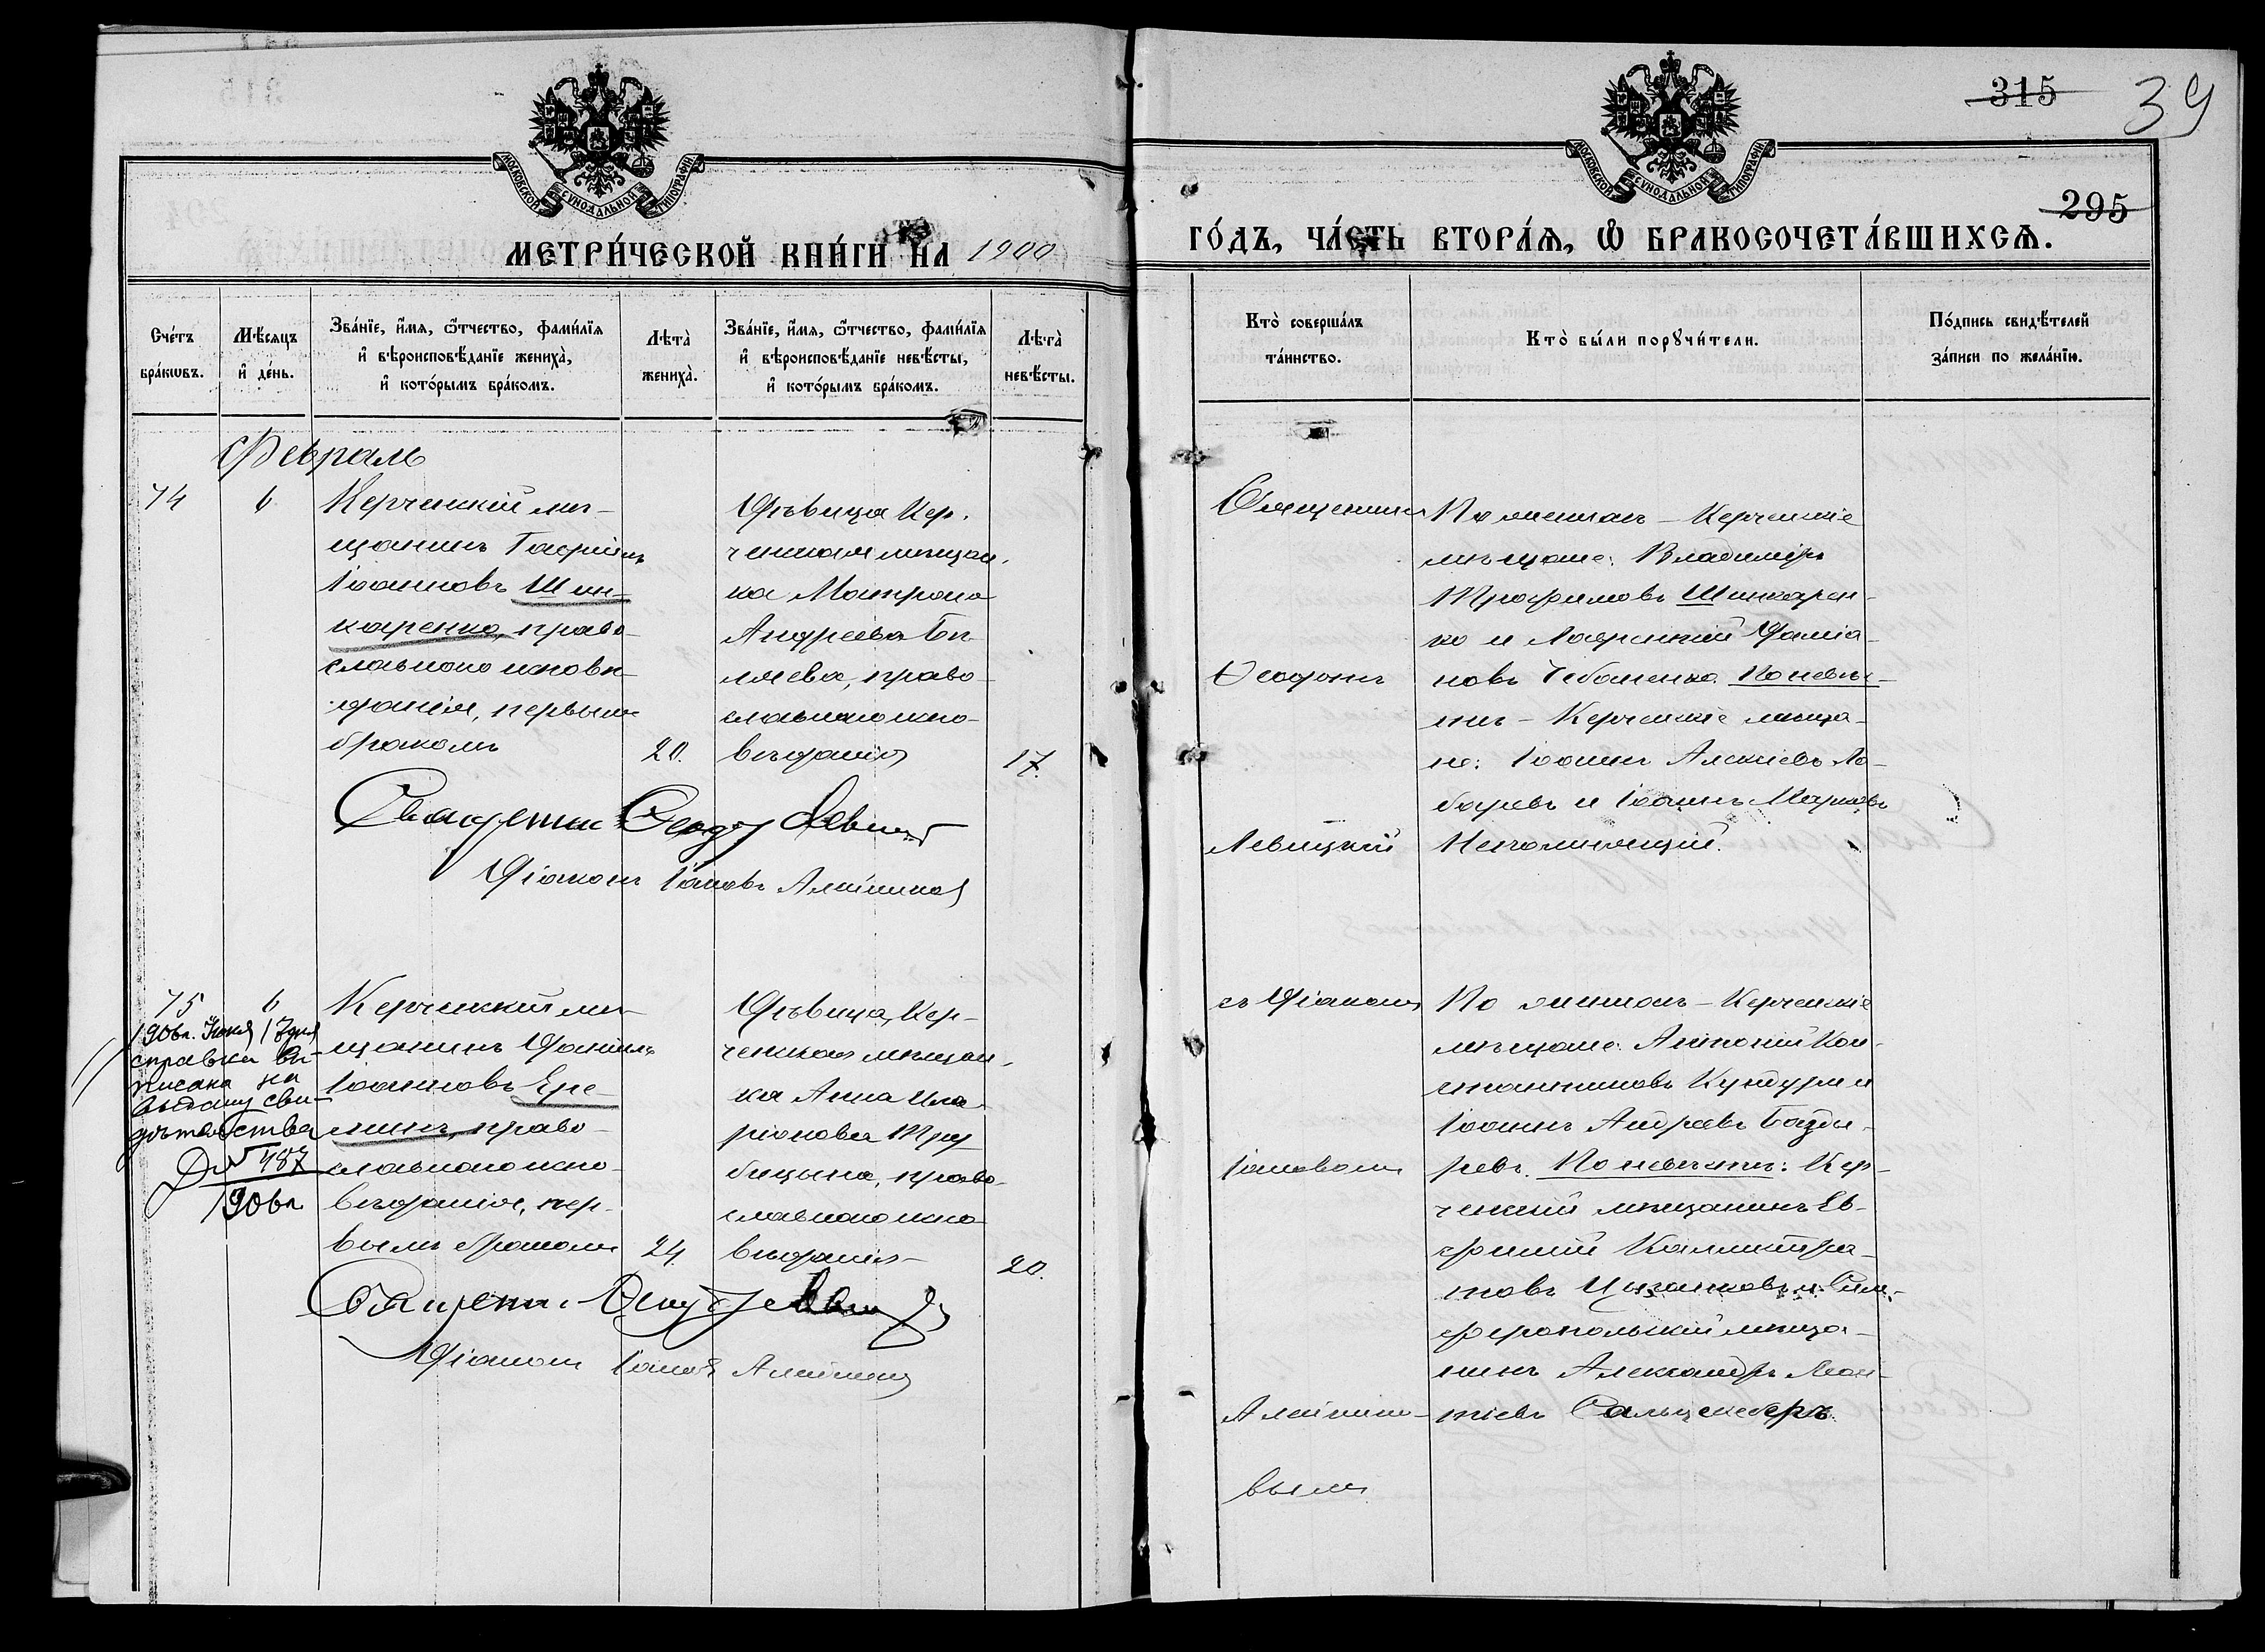 315
39
295
МОСКОВСКОЙ СѴНОДАЛЬНОЙ ТИПОГРАФІИ
МОСКОВСКОЙ СѴНОДАЛЬНОЙ ТИПОГРАФІИ
МЕТРИ́ЧЕСКОЙ КНИ́ГИ НА 1900
ГО́ДЪ, ЧА́СТЬ ВТОРА́Я, Ѽ БРАКОСОЧЕТА́ВШИХСЯ.
Сче́тъ бра́кѡвъ.
Мѣ́сяцъ и҆ де́нь.
Зва́нїе, и҆́мя, ѻ҆́тчество, фами́лїя
и҆ вѣроисповѣ́данїе жениха̀,
и҆ кото́рымъ бра́комъ.
Лѣта̀ жениха̀.
Зва́нїе, и҆́мя, ѻ҆́тчество, фами́лїя
и҆ вѣроисповѣ́данїе невѣ́сты,
и҆ кото́рымъ бра́комъ.
Лѣта̀ невѣ́сты.
Кто̀ соверша́лъ та́инство.
Кто̀ бы́ли порꙋчи́тели.
По́дпись свидѣ́телей за́писи по жела́нїю.
Февраль
74
6
Керченскій мѣ-
щанинъ Гавріилъ
Іоанновъ Шин-
каренко, право-
славнаго исповѣ-
данія, первымъ
бракомъ
20.
Дѣвица Кер-
ченская мѣщан-
ка Матрона
Андреева Бѣ-
ляева, право-
славнаго испо-
вѣданія
17.
Священникъ
Ѳеодоръ
Левицкій
По женихѣ – Керченскіе
мѣщане: Владиміръ
Трофимовъ Шинкарен-
ко и Лаврентій Даміа-
новъ Чебаненко. По невѣс-
тѣ – Керченскіе мѣща-
не: Іоаннъ Алексіевъ Ло-
баревъ и Іоаннъ Марковъ
Непомнящій.
Священникъ Ѳеодоръ Левицкій
Діаконъ Іаковъ Алейников
75
6
1906г. Іюня 17 дня
справка вы-
писана на
выдачу сви-
дѣтельства
№ 487
1906г
Керченскій мѣ-
щанинъ Даніилъ
Іоанновъ Ере-
минъ, право-
славнаго испо-
вѣданія, пер-
вымъ бракомъ
24.
Дѣвица, Кер-
ченская мѣщан-
ка Анна Ила-
ріонова Тру-
бицына, право-
славнаго испо-
вѣданія
20.
съ Діакономъ
Іаковомъ
Алейнико-
вымъ
По женихѣ – Керченскіе
мѣщане: Антоній Кон-
стантиновъ Кундури и
Іоаннъ Андреевъ Базды-
ревъ. По невѣстѣ: Кер-
ченскій мѣщанинъ Ев-
фимій Каллистра-
товъ Цыганковъ и Сим-
феропольскій мѣща-
нинъ Александръ Леон-
тіевъ
Священникъ Ѳеодоръ Левицкій
Діаконъ Іаковъ Алейников